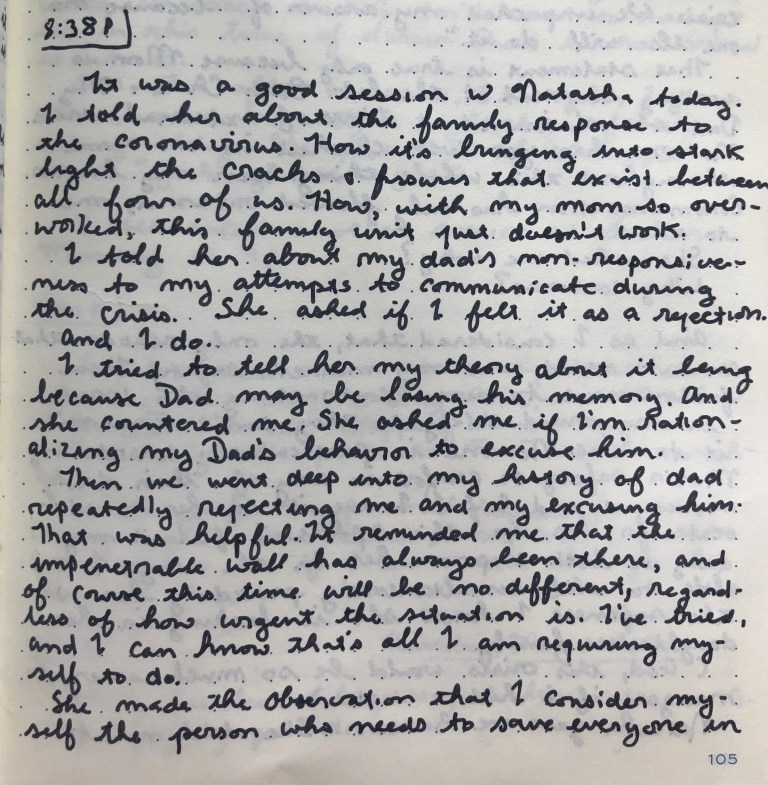 8:38P
It was a good session w Natasha today.
I told her about the family response to
the coronavirus. How it's bringing into stark
light the cracks & fissures that exist between
all four of us. How, with my mom so over-
worked, this family unit just doesn't work.
I told her about my dad's non-responsive-
ness to my attempts to communicate during
the crisis. She asked if I felt it as a rejection.
And I do.
I tried to tell her my theory about it being
because Dad may be losing his memory. And
she countered me. She asked me if I'm ration-
alizing my Dad's behavior to excuse him.
Then we went deep into my history of dad
repeatedly rejecting me and my excusing him.
That was helpful. It reminded me that the
impenetrable wall has always been there, and
of course this time will be no different, regard-
less of how urgent the situation is. I've tried,
and I can know that's all I am requiring my-
self to do.
She made the observation that I consider my-
self the person who needs to save everyone in
105